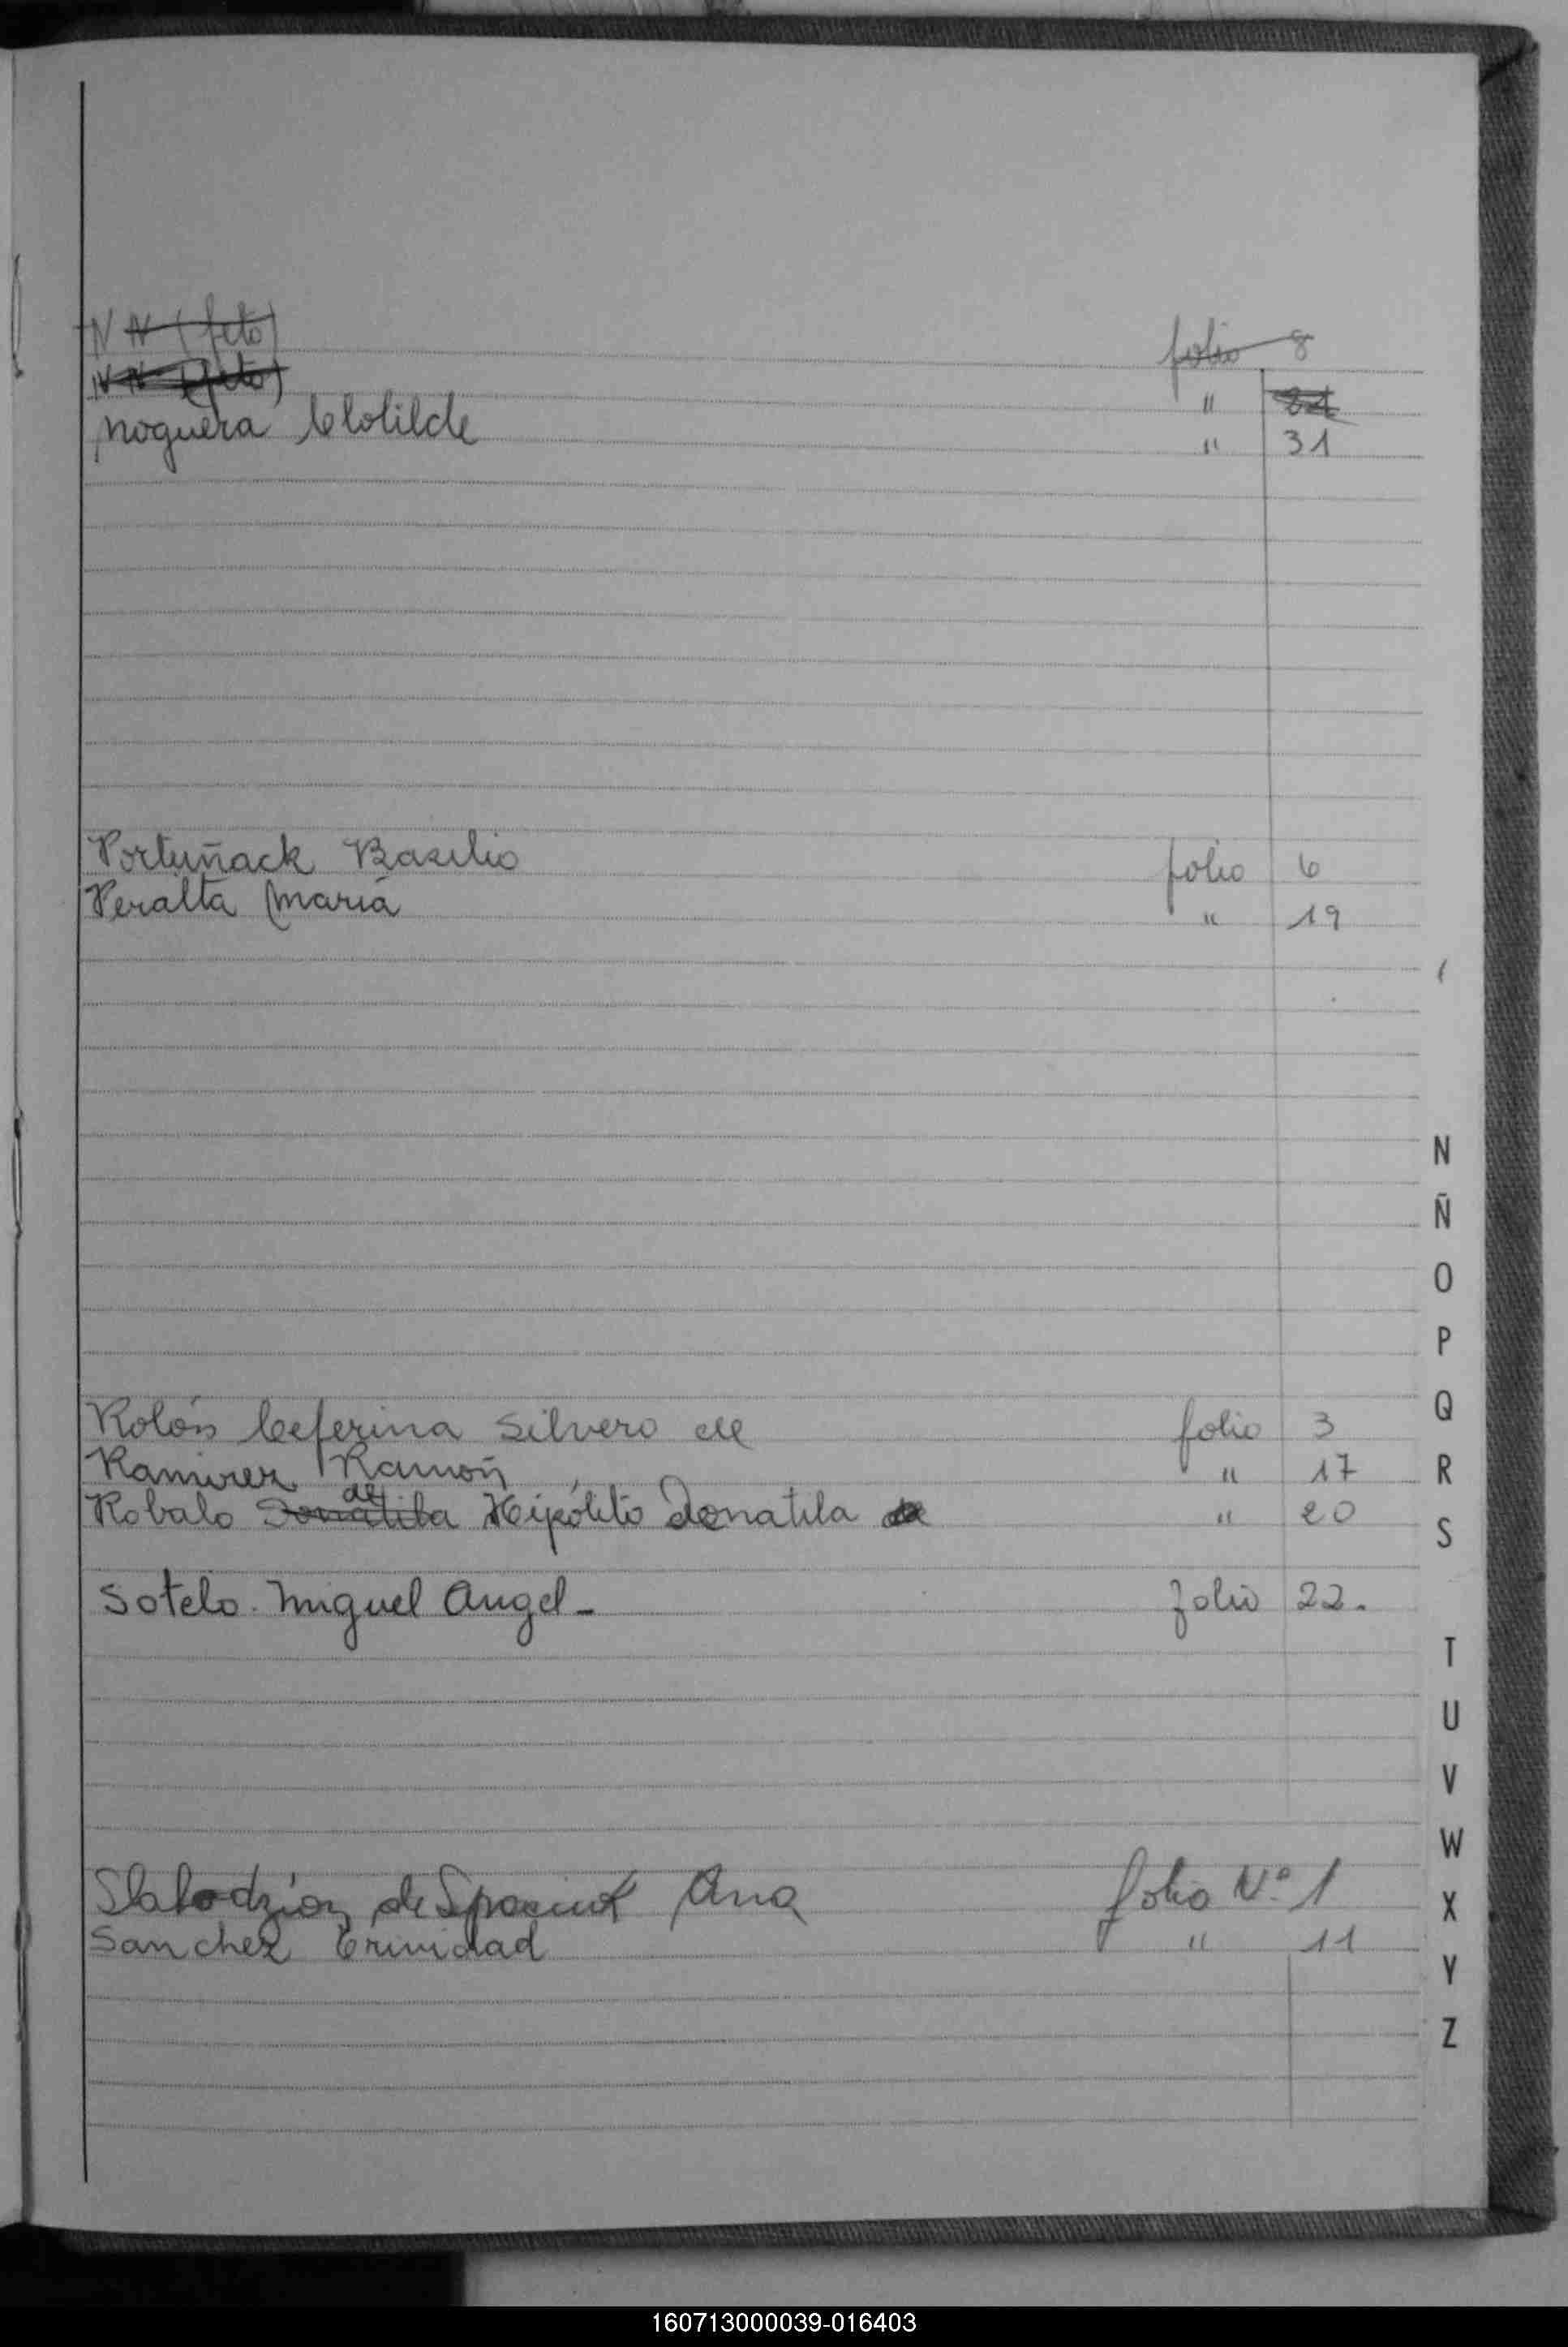 N N (feto) folio 8
N N (feto) " 21
Noguera Clotilde " 31
Portuñack Basilio folio 6
Peralta María " 19
N
Ñ
O
P
Q
Rolón Ceferina Silvero de folio 3
Ramirez Ramón " 17
R
de
Robalo Donatila Hipólito Donatila de " 20
S
Sotelo Miguel Angel - folio 22.
T
U
V
W
Slabodzion de Spaciuk Ana folio Nº 1
X
Sanchez Trinidad " 11
Y
Z
160713000039-016403